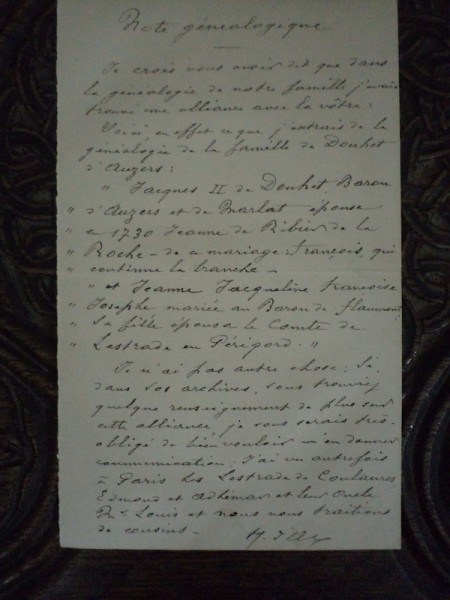 Note généalogique
Je crois vous avoir dit que dans
la généalogie de notre famille j'avais
trouvé une alliance avec la vôtre :
Voici, en effet ce que j'extrais de la
généalogie de la famille de Douhet
d'Auzers :
" Jacques II de Douhet, Baron
" d'Auzers et de Marlat épouse
" en 1730 Jeanne de Ribier de la
" Roche - de ce mariage François, qui
" continue la branche -
" et Jeanne Jacqueline françoise
" Josephe mariée au Baron de
" Sa fille épousa le Comte de
" Lestrade en Périgord. "
Je n'ai pas autre chose : Si,
dans vos archives, vous trouviez
quelque renseignement de plus sur
cette alliance, je vous serais très-
obligé de bien vouloir m'en donner
communication. J'ai vu autrefois
à Paris les Lestrade de Coulaures
Edmond et Adhémar et leur oncle
Louis et nous nous traitions
de cousins -